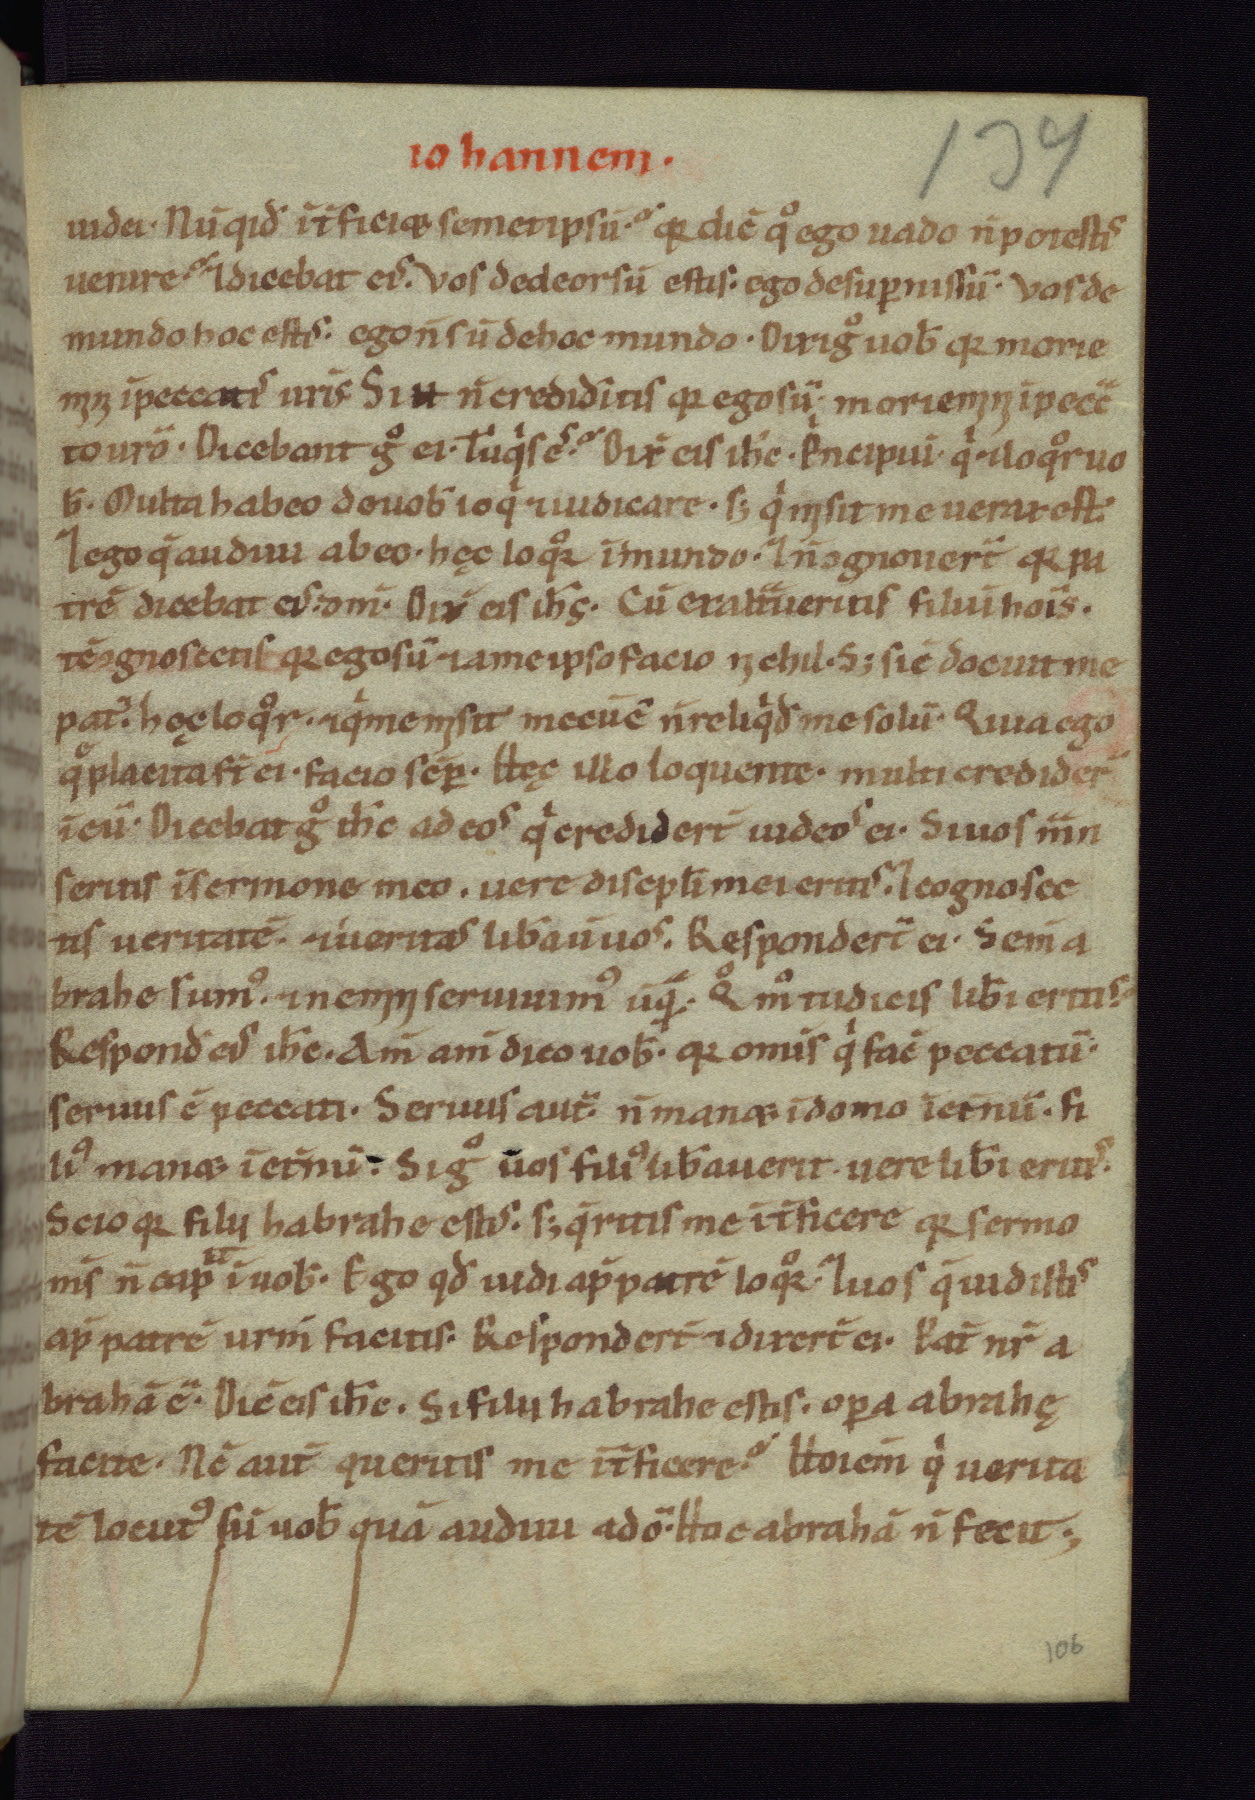 iohannem.
134
uidei. Nūqid īt̄ficiet semetipsū. qr dic̄ qͦ ego uado n̄ potestiſ
uenire. ⁊dicebat eiſ. Vos dedeorsū estis. ego desup̱nis sū. Vos de
mundo hoc estiſ. ego n̄ sū dehoc mundo. Dixi gͦ uob̄ qr morie
mīn īpeccatiſ uris̄ Si n̄ credid̄itis qr ego sū. moriemīn īpecc̄
to uro. Dicebant gͦ ei. Tu qͥs ē. Dix̄ eis ih̄c. P̱ncipiū. qͥ ⁊loqͦr uo
b̄. Multa habeo de uob̄ loqͥ ⁊iudicare. s; qͥ m̄sit me uerax est.
⁊ego q̄ audiui ab eo. hęc loqͦr īmundo. ⁊n̄ ↄgnouer̄t qr pa
trē dicebat eiſ. dm̄. Dix̄ eis ih̄ſ. Cū exaltaueritis filiū hois̄.
tc̄ ↄgnoscetis qr ego sū ⁊ameipso facio nichil. S; sic̄ docuit me
pat̄. hęc loqͦr. ⁊qͥme misit mecū ē n̄ reliqͥd me solū. Quia ego
qͤ placita st̄ ei. facio sēp̱. Hęc illo loquente. multi credider̄
ī eū. Dicebat gͦ ih̄c ad eoſ qͥ crediderт̄ iudeoſ ei. Si uos man
seritis īsermone meo. uere discpl̄i mei eritiſ. ⁊cognosce
tis ueritatē. ⁊ueritaſ lib̄auit uoſ. Responder̄t ei. Semn̄ a
brahe sumꝰ. ⁊nemīni seruiuimꝰ ūq̄. Qͦmͦ tu dicis lib̄i eritiſ.
Respond̄ eiſ ih̄c. Am̄ am̄ dico uob̄. qr omis̄ qͥ fac̄ peccatū.
seruus ē peccati. Seruus aut̄ n̄ manet īdomo īet̄nū. fi
liꝰ manet īet̄nū. Si gͦ uos filiꝰ lib̄auerit. uere lib̄i eritiſ.
Scio qr filii habrahe estiſ. s; q̄ritis me īt̄ficere qr sermo
ms̄ n̄ cap̱it īuob̄. Ego qd̄ uidi ap̄ patrē loqͦr. ⁊uos q̄ uidistiſ
ap̄ patrē urm̄ facitis. Responder̄t ⁊dixer̄t ei. Pat̄ nr̄ a
brahā ē. Dic̄ eis ih̄c. Si filii habrahe estis. op̱a abrahę
facite. Nc̄ aut̄ queritis me īt̄ficere. Hoiem̄ qͥ uerita
tē locutꝰ sū uob̄ quā audiui ado. Hoc abrahā n̄ fecit;
106